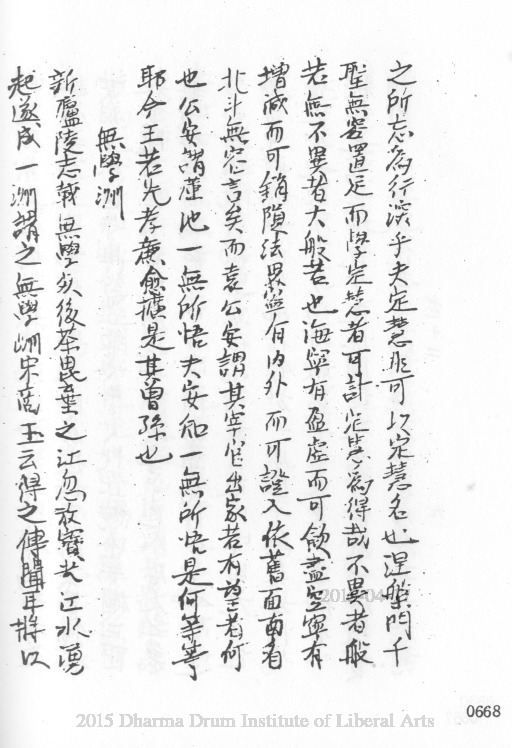 之所忘為行深乎夫定慧非可以定慧名也涅槃門千
聖無容置足而學定慧者可計定慧為得哉不異者般
若無不異者大般若也海寧有盈虛而可飲盡空寧有
增減而可銷隕法界寧有內外而可證入依舊面南看
北斗無容言矣而袁公安謂其宰官出家若有望者何
也公安謂蓮池一無所悟夫安知一無所悟是何等等
耶今王若先孝廉愈擴是其曾孫也
無學洲
新廬陵志載無學歿後茶毘葬之江忽放寶光江水湧
起遂成一洲謂之無學洲宋商玉云得之傳聞耳將以
0668
2015 Dharma Drum Institute of Liberal Arts